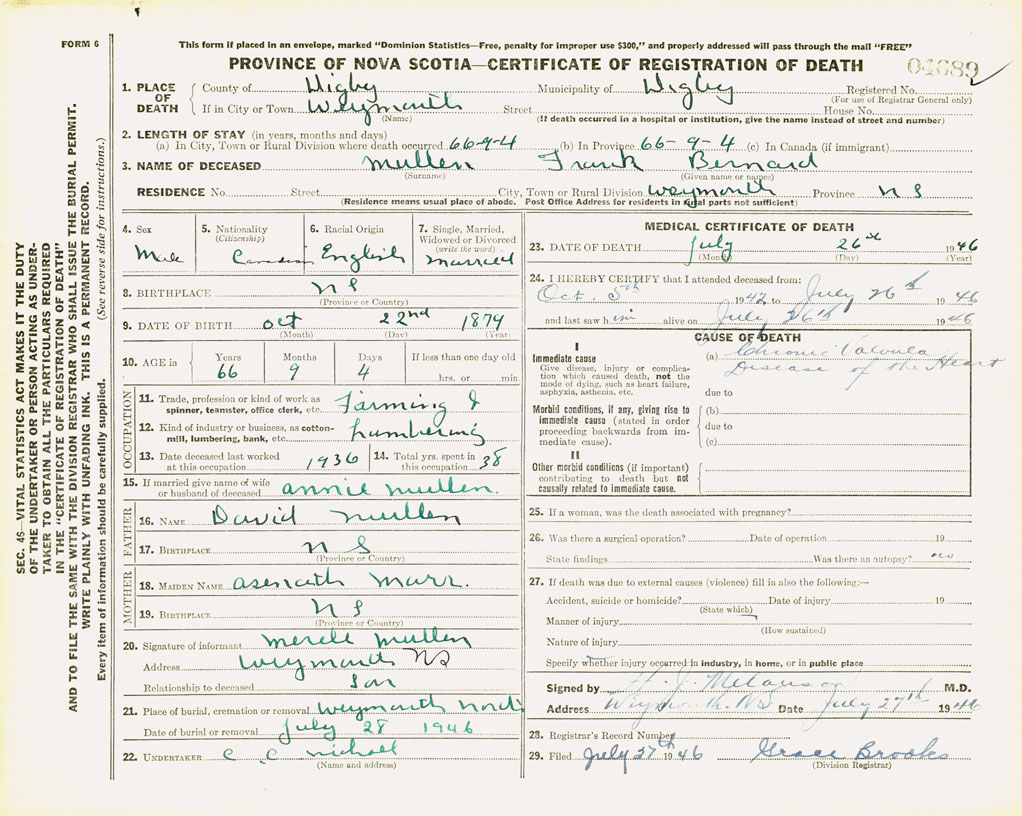 FORM 6
This form if placed in an envelope, marked "Dominion Statistics—Free, penalty for improper use $300," and properly addressed will pass through the mail "FREE"
PROVINCE OF NOVA SCOTIA—CERTIFICATE OF REGISTRATION OF DEATH
04689
1. PLACE OF DEATH
County of Digby Municipality of Digby Registered No.
(For use of Registrar General only)
If in City or Town Weymouth Street House No.
(Name) (If death occurred in a hospital or institution, give the name instead of street and number)
2. LENGTH OF STAY (in years, months and days)
(a) In City, Town or Rural Division where death occurred 66-9-4 (b) In Province 66-9-4 (c) In Canada (if immigrant)
3. NAME OF DECEASED Mullen Frank Bernard
(Surname) (Given name or names)
RESIDENCE No. Street City, Town or Rural Division Weymouth Province N S
(Residence means usual place of abode. Post Office Address for residents in rural parts not sufficient)
4. Sex
Male
5. Nationality
(Citizenship)
Canadian
6. Racial Origin
English
7. Single, Married, Widowed or Divorced
(write the word)
Married
8. BIRTHPLACE N S
(Province or Country)
9. DATE OF BIRTH Oct 22nd 1879
(Month) (Day) (Year)
10. AGE in
Years Months Days If less than one day old
66 9 4 hrs. or min
OCCUPATION
11. Trade, profession or kind of work as Farming &
spinner, teamster, office clerk, etc.
12. Kind of industry or business, as cotton- Lumbering
mill, lumbering, bank, etc.
13. Date deceased last worked
at this occupation 1936
14. Total yrs. spent in
this occupation 38
15. If married give name of wife
or husband of deceased Annie Mullen.
FATHER
16. NAME David Mullen
17. BIRTHPLACE N S
(Province or Country)
MOTHER
18. MAIDEN NAME Asenath Marr.
19. BIRTHPLACE N S
(Province or Country)
20. Signature of informant Merele Mullen
Address Weymouth NS
Relationship to deceased Son
21. Place of burial, cremation or removal Weymouth North
Date of burial or removal July 28 1946
22. UNDERTAKER C C
(Name and address)
MEDICAL CERTIFICATE OF DEATH
23. DATE OF DEATH July 26th 1946
(Month) (Day) (Year)
24. I HEREBY CERTIFY that I attended deceased from:
Oct. 5th 1942 to July 26th 1946
and last saw him alive on July 26th 1946
CAUSE OF DEATH
I
Immediate cause
Give disease, injury or complication which caused death, not the mode of dying, such as heart failure, asphyxia, asthenia, etc.
(a) Chronic Valvula
Disease of the Heart
due to
Morbid conditions, if any, giving rise to immediate cause (stated in order proceeding backwards from immediate cause).
(b)
due to
(c)
II
Other morbid conditions (if important) contributing to death but not causally related to immediate cause.
25. If a woman, was the death associated with pregnancy?
26. Was there a surgical operation? Date of operation 19
State findings Was there an autopsy? no
27. If death was due to external causes (violence) fill in also the following:—
Accident, suicide or homicide? Date of injury 19
(State which)
Manner of injury
(How sustained)
Nature of injury
Specify whether injury occurred in industry, in home, or in public place
Signed by H. J. Melanson M.D.
Address Weymouth. NS Date July 27th 1946
28. Registrar's Record Number
29. Filed July 27th 1946 Grace Brooks
(Division Registrar)
SEC. 46—VITAL STATISTICS ACT MAKES IT THE DUTY
OF THE UNDERTAKER OR PERSON ACTING AS UNDER-
TAKER TO OBTAIN ALL THE PARTICULARS REQUIRED
IN THE "CERTIFICATE OF REGISTRATION OF DEATH"
AND TO FILE THE SAME WITH THE DIVISION REGISTRAR WHO SHALL ISSUE THE BURIAL PERMIT.
WRITE PLAINLY WITH UNFADING INK. THIS IS A PERMANENT RECORD.
Every item of information should be carefully supplied. (See reverse side for instructions.)